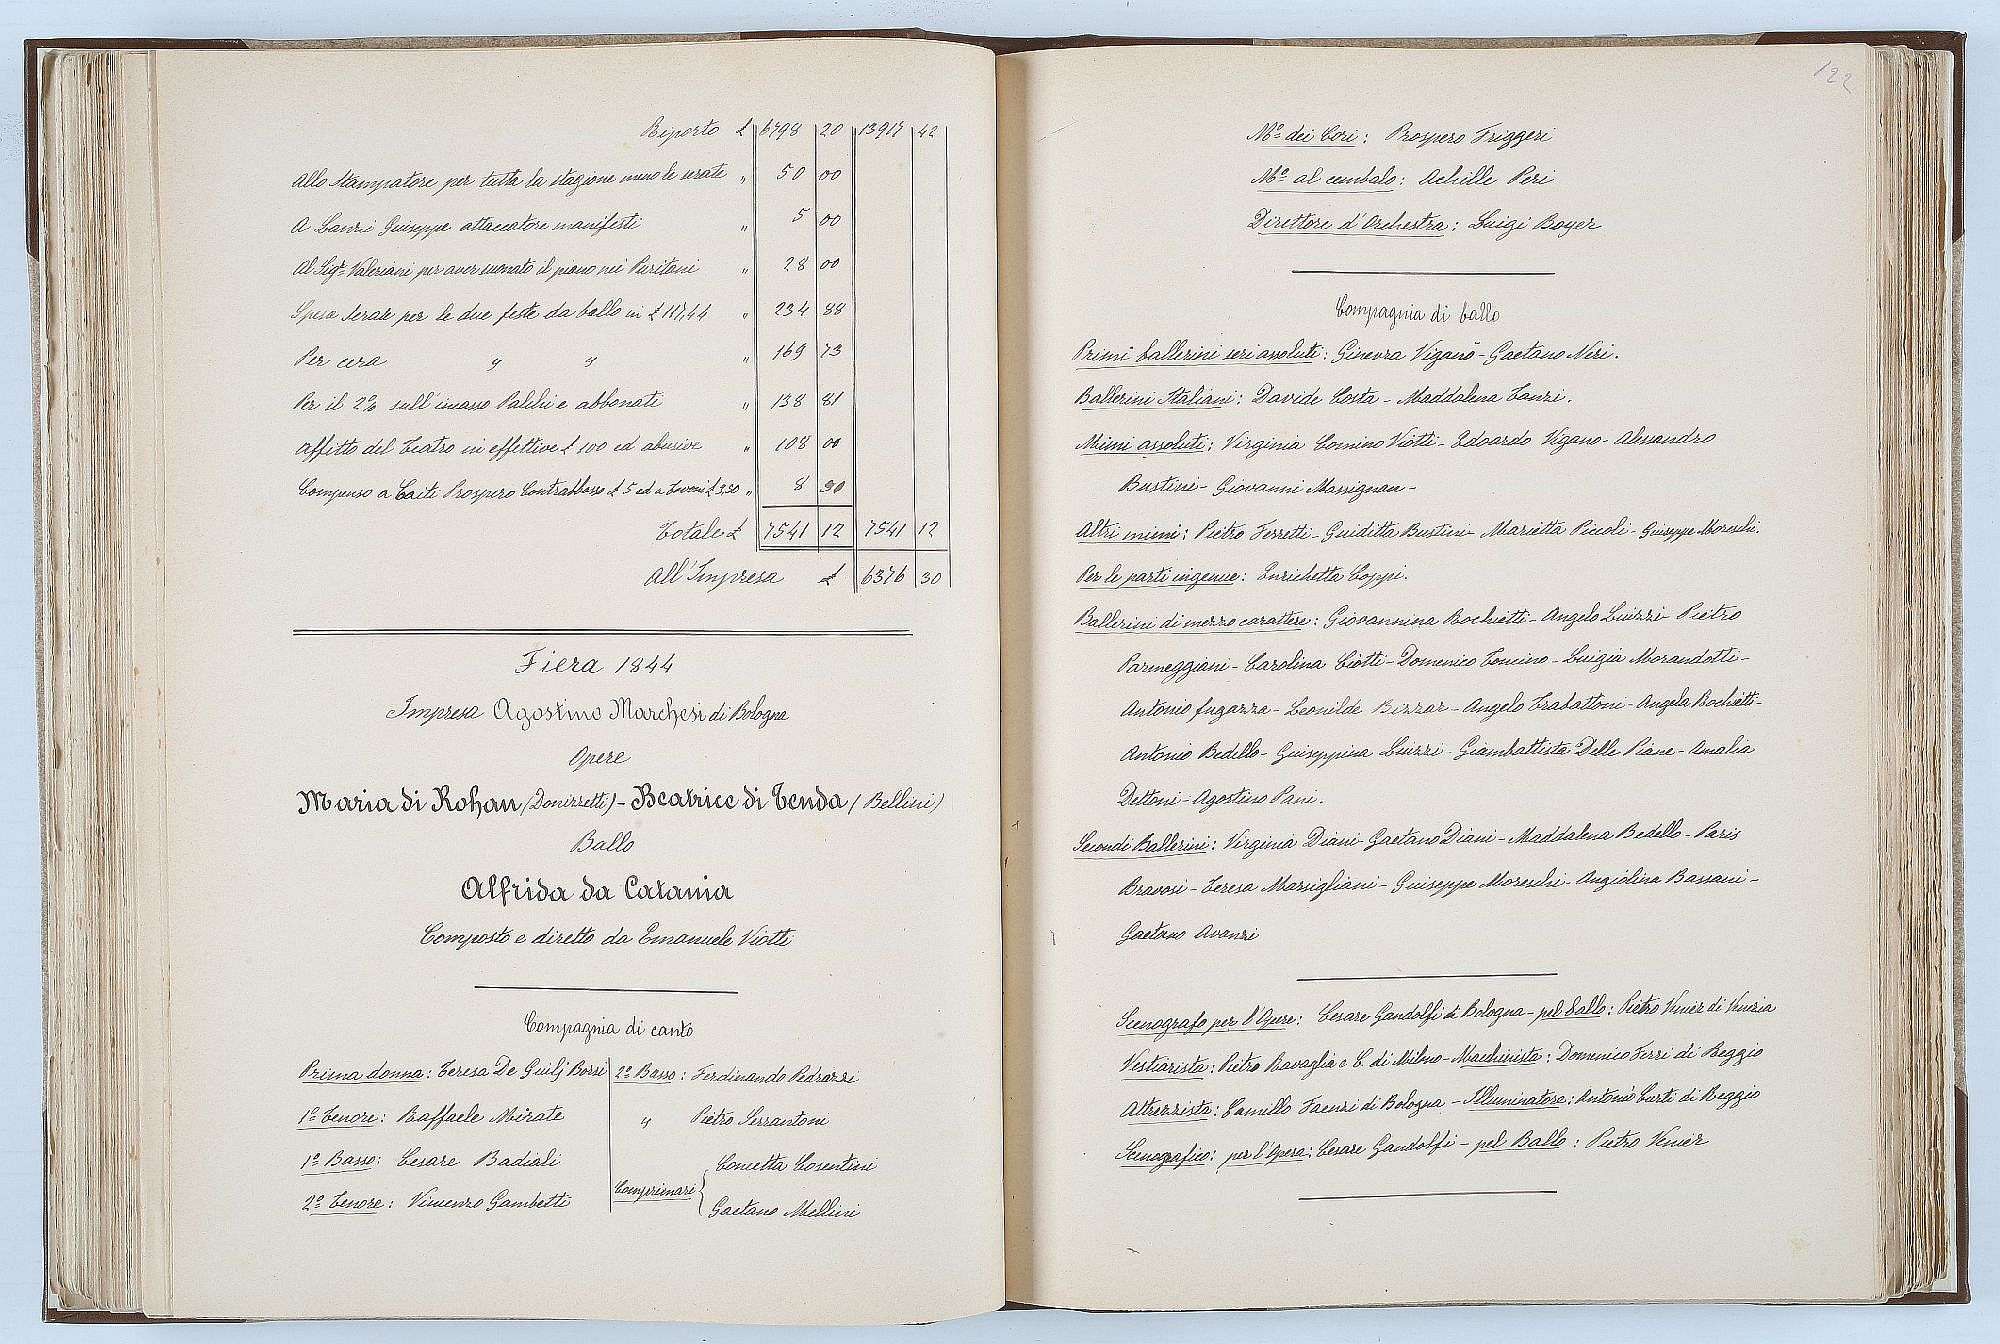 Riporto £ 6798 20 13917 42
Allo Stampatore per tutta la stagione meno le serate „ 50 00
A Lanzi Giuseppe attaccatore manifesti „ 5 00
Al Sigr. Valeriani per aver suonato il piano nei Puritani „ 28 00
Spesa serale per le due feste da ballo in £ 117,44 „ 234 88
Per cera „ „ „ 169 73
Per il 2% sull'incasso Palchi e abbonati „ 138 81
Affitto del Teatro in effettive £ 100 ed abusive „ 108 00
Compenso a Caiti Prospero Contrabbasso £ 5 ed a £ 3,30 „ 8 30
Totale £ 7541 12 7541 12
All'Impresa £ 6376 30
Fiera 1844
Impresa Agostino Marchesi di Bologna
Opere
Maria di Rohan (Donizzetti) - Beatrice di Tenda (Bellini)
Ballo
Alfrida da Catania
Composto e diretto da Emanuele Viotti
Compagnia di canto
Prima donna: Teresa De Giulj Borsi
1º Tenore: Raffaele Mirate
1º Basso: Cesare Badiali
2º Tenore: Vincenzo Gambetti
2º Basso: Ferdinando Pedrazzi
„ Pietro Serrantoni
Comprimari { Concetta Cosentini
Gaetano Mellini
122
Mº dei Cori: Prospero Friggeri
Mº al cembalo: Achille Peri
Direttore d'Orchestra: Luigi Boyer
Compagnia di ballo
Primi ballerini seri assoluti: Ginevra Viganò - Gaetano Neri.
Ballerini Italiani: Davide Costa - Maddalena Tanzi.
Mimi assoluti: Virginia Comino Viotti - Edoardo Vigano - Alessandro
Bustini - Giovanni Massignan -
Altri mimi: Pietro Ferretti - Guiditta Bustini - Marietta Piccoli - Giuseppe Moreschi.
Per le parti ingenue: Enrichetta Coppi.
Ballerini di mezzo carattere: Giovannina Bochietti - Angelo Cuizzi - Pietro
Parmeggiani - Carolina Ciotti - Domenico Comino - Luigia Morandotti -
Antonio fugazza - Leonilde Bizzar - Angelo Trabattoni - Angela Bochietti -
Antonio Bedello - Guiseppina Cuizzi - Giambattista Delle Piane - Amalia
Dettoni - Agostino Pani.
Secondi Ballerini: Virginia Diani - Gaetano Diani - Maddalena Bedello - Paris
Bravosi - Teresa Marsigliani - Guiseppe Moreschi - Angiolina Bassani -
Gaetano Avanzi
Scenografo per l'Opere: Cesare Gandolfi di Bologna - pel ballo: Pietro Venier di Venezia
Vestiarista: Pietro Ravaglia e C. di Milno - Machinista: Domenico Ferri di Reggio
Attrezzista: Camillo Faenzi di Bologna - Illuminatore: Antonio Curti di Reggio
Scenografico: per l'Opera: Cesare Gandolfi - pel Ballo: Pietro Venier